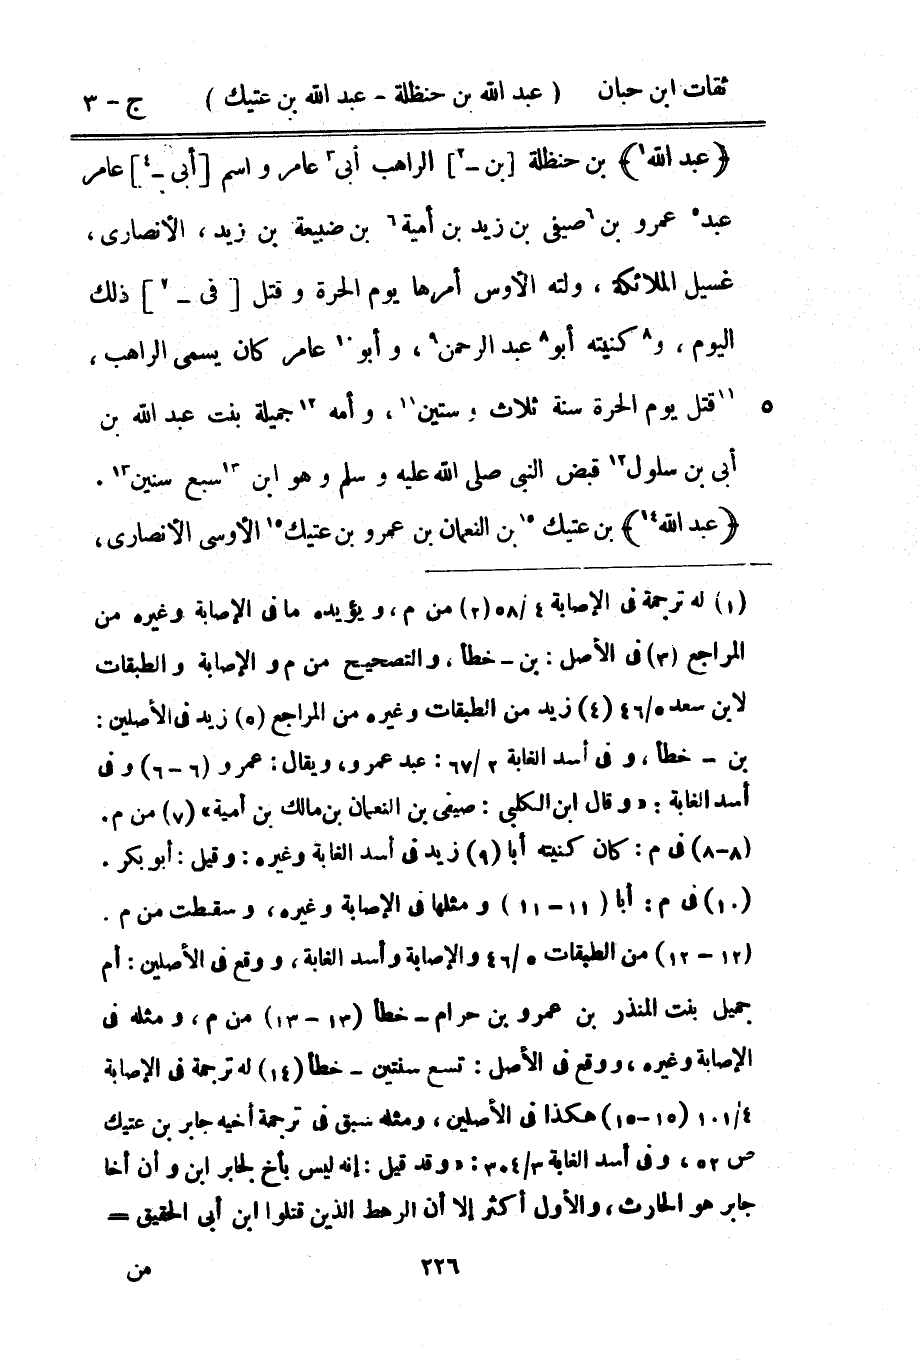 ثقات ابن حبان ( عبد الله بن حنظلة - عبد الله بن عتيك ) ج - ٣
﴿ عبد الله١ ﴾ بن حنظلة [ بن -٢ ] الراهب أبى٣ عامر و اسم [ أبى -٤ ] عامر
عبد٥ عمرو بن ٦صيفى بن زيد بن أمية٦ بن ضبيعة بن زيد ، الأنصارى ،
غسيل الملائكة ، ولته الأوس أمرها يوم الحرة و قتل [ فى -٧ ] ذلك
اليوم ، و٨ كنيته أبو٨ عبد الرحمن٩ ، و أبو١٠ عامر كان يسمى الراهب ،
٥ ١١قتل يوم الحرة سنة ثلاث و ستين١١ ، و أمه ١٢جميلة بنت عبد الله بن
أبى بن سلول١٢ قبض النبى صلى الله عليه و سلم و هو ابن ١٣سبع سنين١٣ .
﴿ عبد الله١٤ ﴾ بن عتيك ١٥بن النعمان بن عمرو بن عتيك١٥ الأوسى الأنصارى ،
(١) له ترجمة فى الإصابة ٤ /٥٨ (٢) من م ، و يؤيده ما فى الإصابة وغيره من
المراجع (٣) فى الأصل : بن - خطأ ، والتصحيح من م و الإصابة و الطبقات
لابن سعد ٥/ ٤٦ (٤) زيد من الطبقات وغيره من المراجع (٥) زيد فى الأصلين :
بن - خطأ ، و فى أسد الغابة ٢ /٦٧ : عبد عمرو ، ويقال : عمرو (٦-٦) و فى
أسد الغابة : « و قال ابن الكلبى : صيفى بن النعمان بن مالك بن أمية » (٧) من م .
(٨-٨) فى م : كان كنيته أبا (٩) زيد فى أسد الغابة وغيره : وقيل : أبو بكر .
(١٠) فى م : أبا ( ١١-١١ ) و مثلها فى الإصابة وغيره ، و سقطت من م .
(١٢ - ١٢) من الطبقات ٥ /٤٦ والإصابة وأسد الغابة ، و وقع فى الأصلين : أم
جميل بنت المنذر بن عمرو بن حرام - خطأ (١٣ - ١٣) من م ، و مثله فى
الإصابة وغيره ، ووقع فى الأصل : تسع سنتين - خطأ (١٤) له ترجمة فى الإصابة
٤/ ١٠١ (١٥-١٥) هكذا فى الأصلين ، ومثله سبق فى ترجمة أخيه جابر بن عتيك
ص ٥٢ ، وفى أسد الغابة ٣/ ٣٠٤ : « وقد قيل : إنه ليس بأخ لجابر ابن و أن أخا
جابر هو الحارث ، والأول أكثر إلا أن الرهط الذين قتلوا ابن أبى الحقيق =
٢٢٦ من